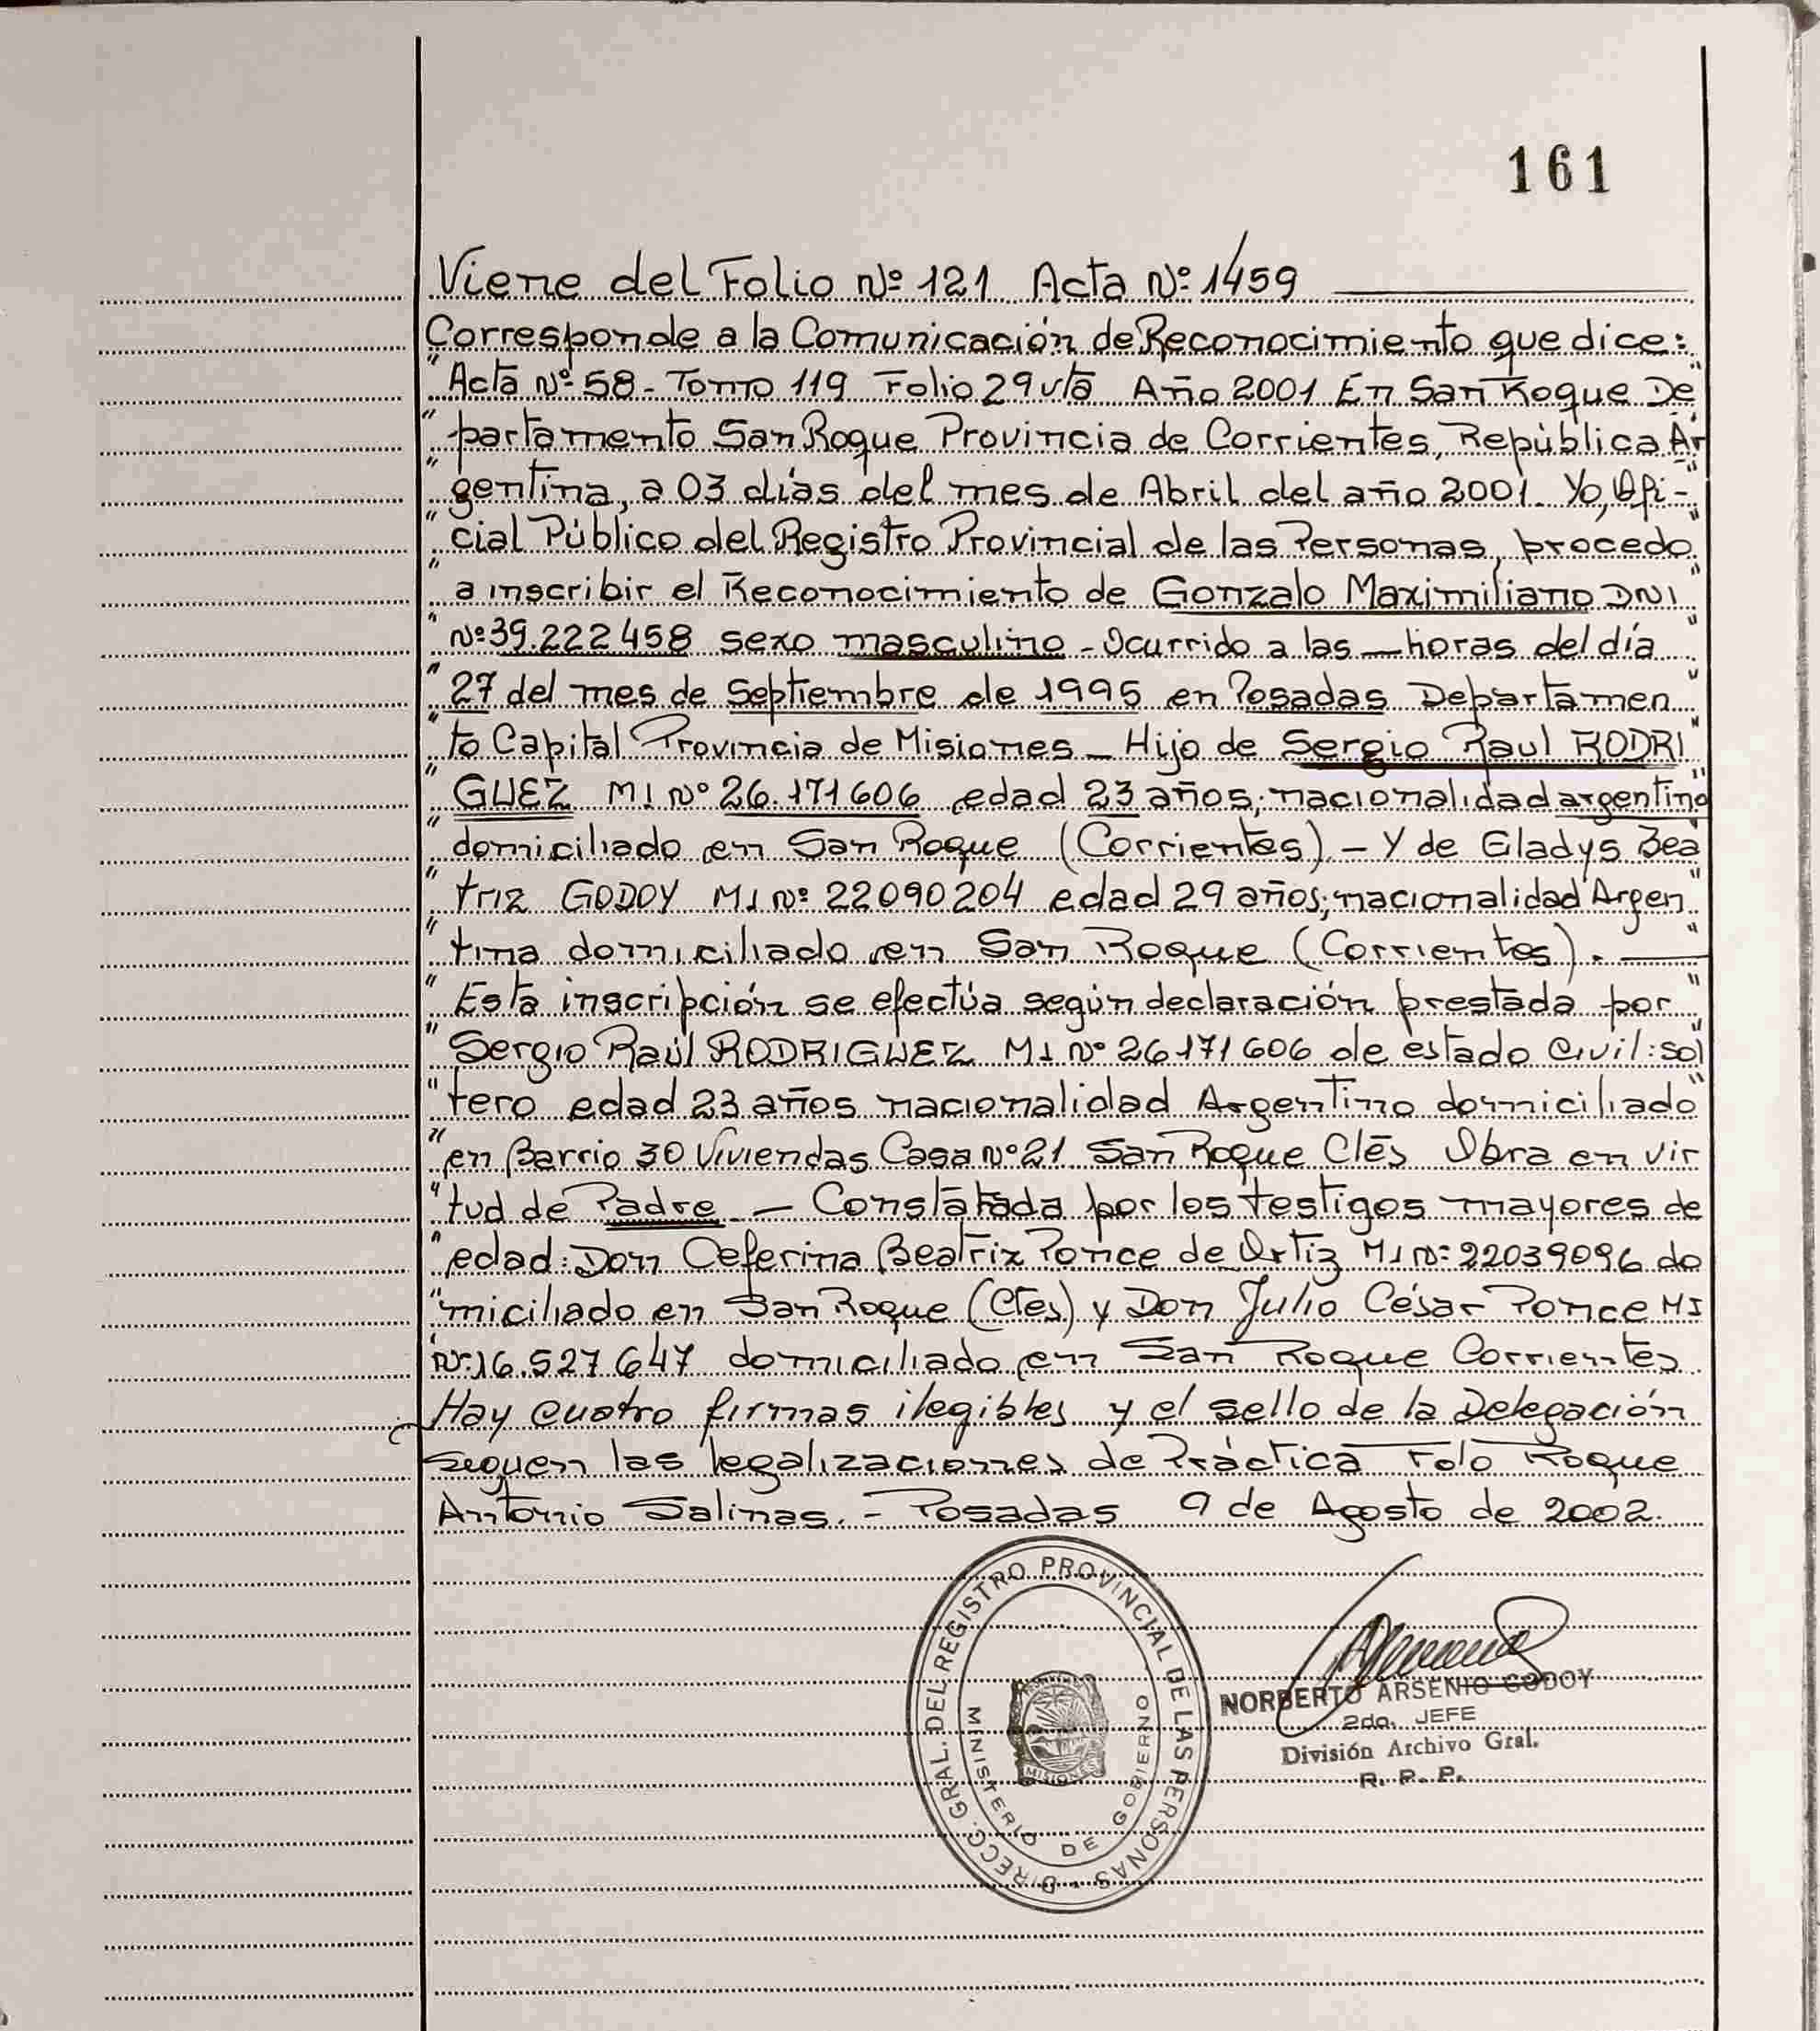 161
Viene del Folio Nº 121 Acta Nº 1459
Corresponde a la Comunicación de Reconocimiento que dice:
"Acta Nº 58 - Tomo 119 Folio 29 vta Año 2001 En San Roque De"
"partamento San Roque Provincia de Corrientes, República Ar
"gentina, a 03 días del mes de Abril del año 2001. Yo, Ofi-"
"cial Público del Registro Provincial de las Personas, procedo"
"a inscribir el Reconocimiento de Gonzalo Maximiliano DNI"
"Nº 39.222458 sexo masculino - Ocurrido a las — horas del día"
"27 del mes de Septiembre de 1995 en Posadas Departamen"
"to Capital Provincia de Misiones - Hijo de Sergio Raul RODRI"
"GUEZ MI Nº 26.171606 edad 23 años; nacionalidad argentino"
"domiciliado en San Roque (Corrientes) - Y de Gladys Bea
"triz GODOY MI Nº 22090204 edad 29 años; nacionalidad Argen"
"tina domiciliado en San Roque (Corrientes). —"
"Esta inscripción se efectúa según declaración prestada por"
"Sergio Raúl RODRIGUEZ MI Nº 26171606 de estado civil: sol"
"tero edad 23 años nacionalidad Argentino domiciliado"
"en Barrio 30 Viviendas Casa Nº 21 San Roque Ctes Obra en vir
"tud de Padre - Constatada por los testigos mayores de
"edad: Don Ceferina Beatriz Ponce de Ortiz MI Nº 22039096 do
"miciliado en San Roque (Ctes) y Don Julio César Ponce MI
Nº 16.527647 domiciliado en San Roque Corrientes
Hay cuatro firmas ilegibles y el sello de la Delegación
Siguen las legalizaciones de Práctica Fdo Roque
Antonio Salinas. - Posadas 9 de Agosto de 2002.
DIRECC. GRAL. DEL REGISTRO PROVINCIAL DE LAS PERSONAS
MINISTERIO DE GOBIERNO
MISIONES
NORBERTO ARSENIO GODOY
2do. JEFE
División Archivo Gral.
R. P. P.